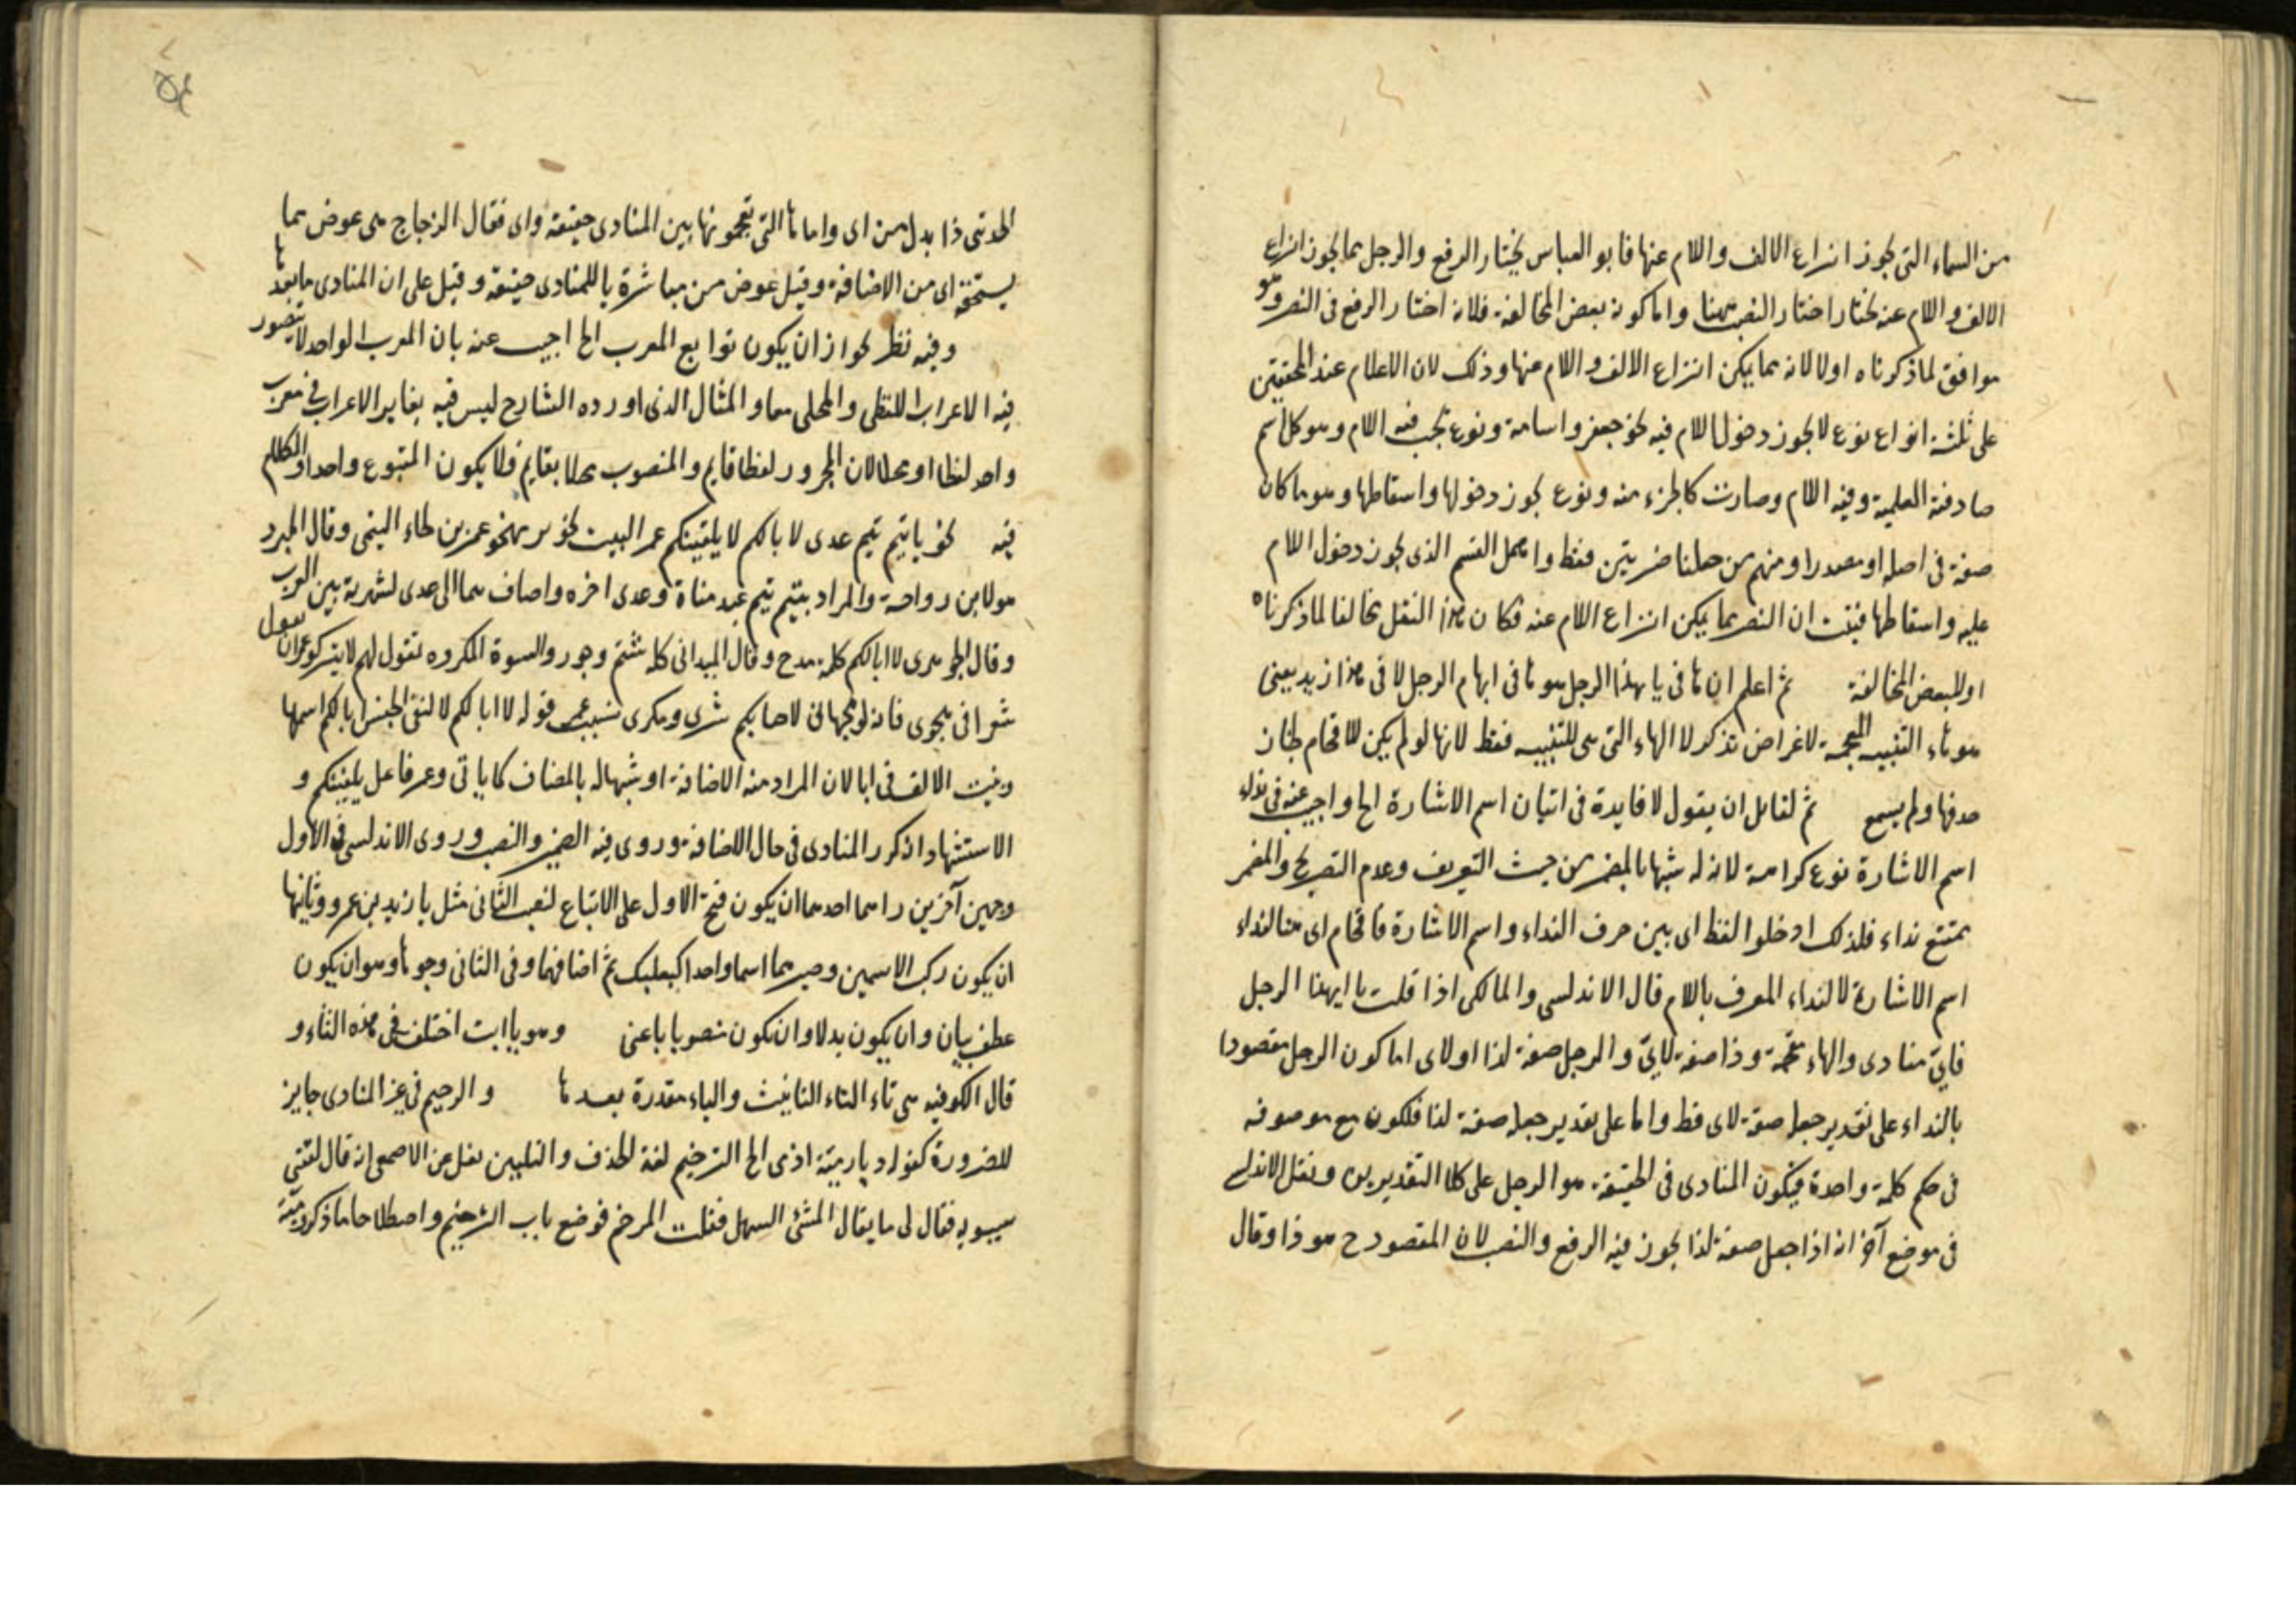 من السماء التى يجوز انزاع الالف واللام عنها فابو العباس يختار الرفع والرجل مما يجوز انزاع
الالف واللام عنه يختار اختار النصب ههنا واما كونه بعض المخالفة فلانه اختار الرفع فى النصر وهو
موافق لما ذكرناه اولا لانه مما يمكن انتزاع الالف واللام عنها وذلك لان الاعلام عند المحققين
على ثلثة انواع نوع لا يجوز دخول اللام فيه نحو جعفر واسامة ونوع يجب فيه اللام وهو كل اسم
صادفته العلمية وفيه اللام وصارت كالجزء منه ونوع يجوز دخولها واسقاطها وهو ما كان
صفة فى اصله او مصدرا ومنهم من جعلنا ضربين فقط واهمل القسم الذى يجوز دخول اللام
عليه واسقاطها فثبت ان النصر مما يمكن انزاع اللام عنه فكان هذا النقل مخالفا لما ذكرناه
او للبعض المخالفة ثم اعلم ان ها فى يا يهذا الرجل هو ها فى ابهام الرجل لا فى هذا زيد يعنى
هو هاء التنبيه المقحمة لاغراض تذكر لا الهاء التى هى للتنبيه فقط لانها لو لم يكن للاقحام لجاز
حذفها ولم يسمع ثم لقائل ان يقول لا فايدة فى اتيان اسم الاشارة الخ واجيب عنه فى نداء
اسم الاشارة نوع كراهة لانه له شبها بالمضمر من حيث التعريف وعدم التصريح والمضمر
يمتنع نداء فلذلك ادخلوا لفظ اى بين حرف النداء واسم الاشارة فاقحام اى هنا لنداء
اسم الاشارة لا لنداء المعرف باللام قال الاندلسى والمالكى اذا قلت يا ايهذا الرجل
فاىّ منادى والهاء مقحمة وذا صفة لاىّ والرجل صفة لذا او لاى اما كون الرجل مقصودا
بالنداء على تقدير جعله صفة لاى فظ واما على تقدير جعله صفة لذا فلكونه مع موصوفه
فى حكم كلمة واحدة فيكون المنادى فى الحقيقة هو الرجل على كلا التقديرين ونقل الاندلسى
فى موضع آخر انه اذا جعل صفة لذا يجوز فيه الرفع والنصب لان المقصود ح هو ذا وقال
ذا بدل من اى واما ها التى تقحمونها بين المنادى حقيقة واى فقال الزجاج هى عوض مما
يستحقه اى من الاضافة وقيل عوض من مباشرة يا للمنادى حقيقة وقيل على ان المنادى ما بعدها
وفيه نظر لجواز ان يكون توابع المعرب الخ اجيب عنه بان المعرب الواحد لا يتصور
فيه الاعراب اللفظى والمحلى معا والمثال الذى اورده الشارح ليس فيه تغاير الاعراب فى معرب
واحد لفظا او محلا لان المجرور لفظا قايم والمنصوب محلا بقايم فلا يكون المتبوع واحدا والكلام
فيه نحو يا تيم تيم عدى لا ابالكم لا يلقينكم عمر البيت لجرير يهجو عمر بن لجاء التيمى وقال المبرد
مولا بن رواحة والمراد بتيم تيم عبد مناة وعدى اخره واضاف هما الى عدى لشهرته بين العرب
وقال الجوهرى لا ابالكم كلمة مدح وقال الميدانى كلمة شتم والسوة المكروه تقول لهم لا يتركو عمران يقول
شعرا فى هجوى قوله لا ابالكم لا لنفى الجنس ابا لكم اسمها
وبنيت الالف فى ابا لان المراد منه الاضافة او شبها له بالمضاف كما ياتى وعمر فاعل يلقينكم و
الاستشهاد انه كرر المنادى فى حال الاضافة وروى فيه الضم والنصب وروى الاندلسى فى الاول
وجهين آخرين احدهما ان يكون فتحة الاول على الاتباع لنصب الثانى مثل يا زيد بن عمرو وثانيها
ان يكون ركب الاسمين وصيرهما اسما واحدا كبعلبك ثم اضافهما وفى الثانى وجوها وهو ان يكون
عطف بيان وان يكون بدلا وان يكون منصوبا باعنى وهو يا ابت اختلف فى هذه التاء و
قال الكوفيه هى تاء التاء التانيث والياء مقدرة بعدها والرخيم فى غير المنادى جايز
للضرورة كقوله ديار مية اذ مى الخ الترخيم لغة الحذف والتليين نقل عن الاصمعى انه قال لقينى
سيبويه فقال لى ما يقال الشئ السهل فقلت المرخم فوضع باب الترخيم واصطلاحا ما ذكره